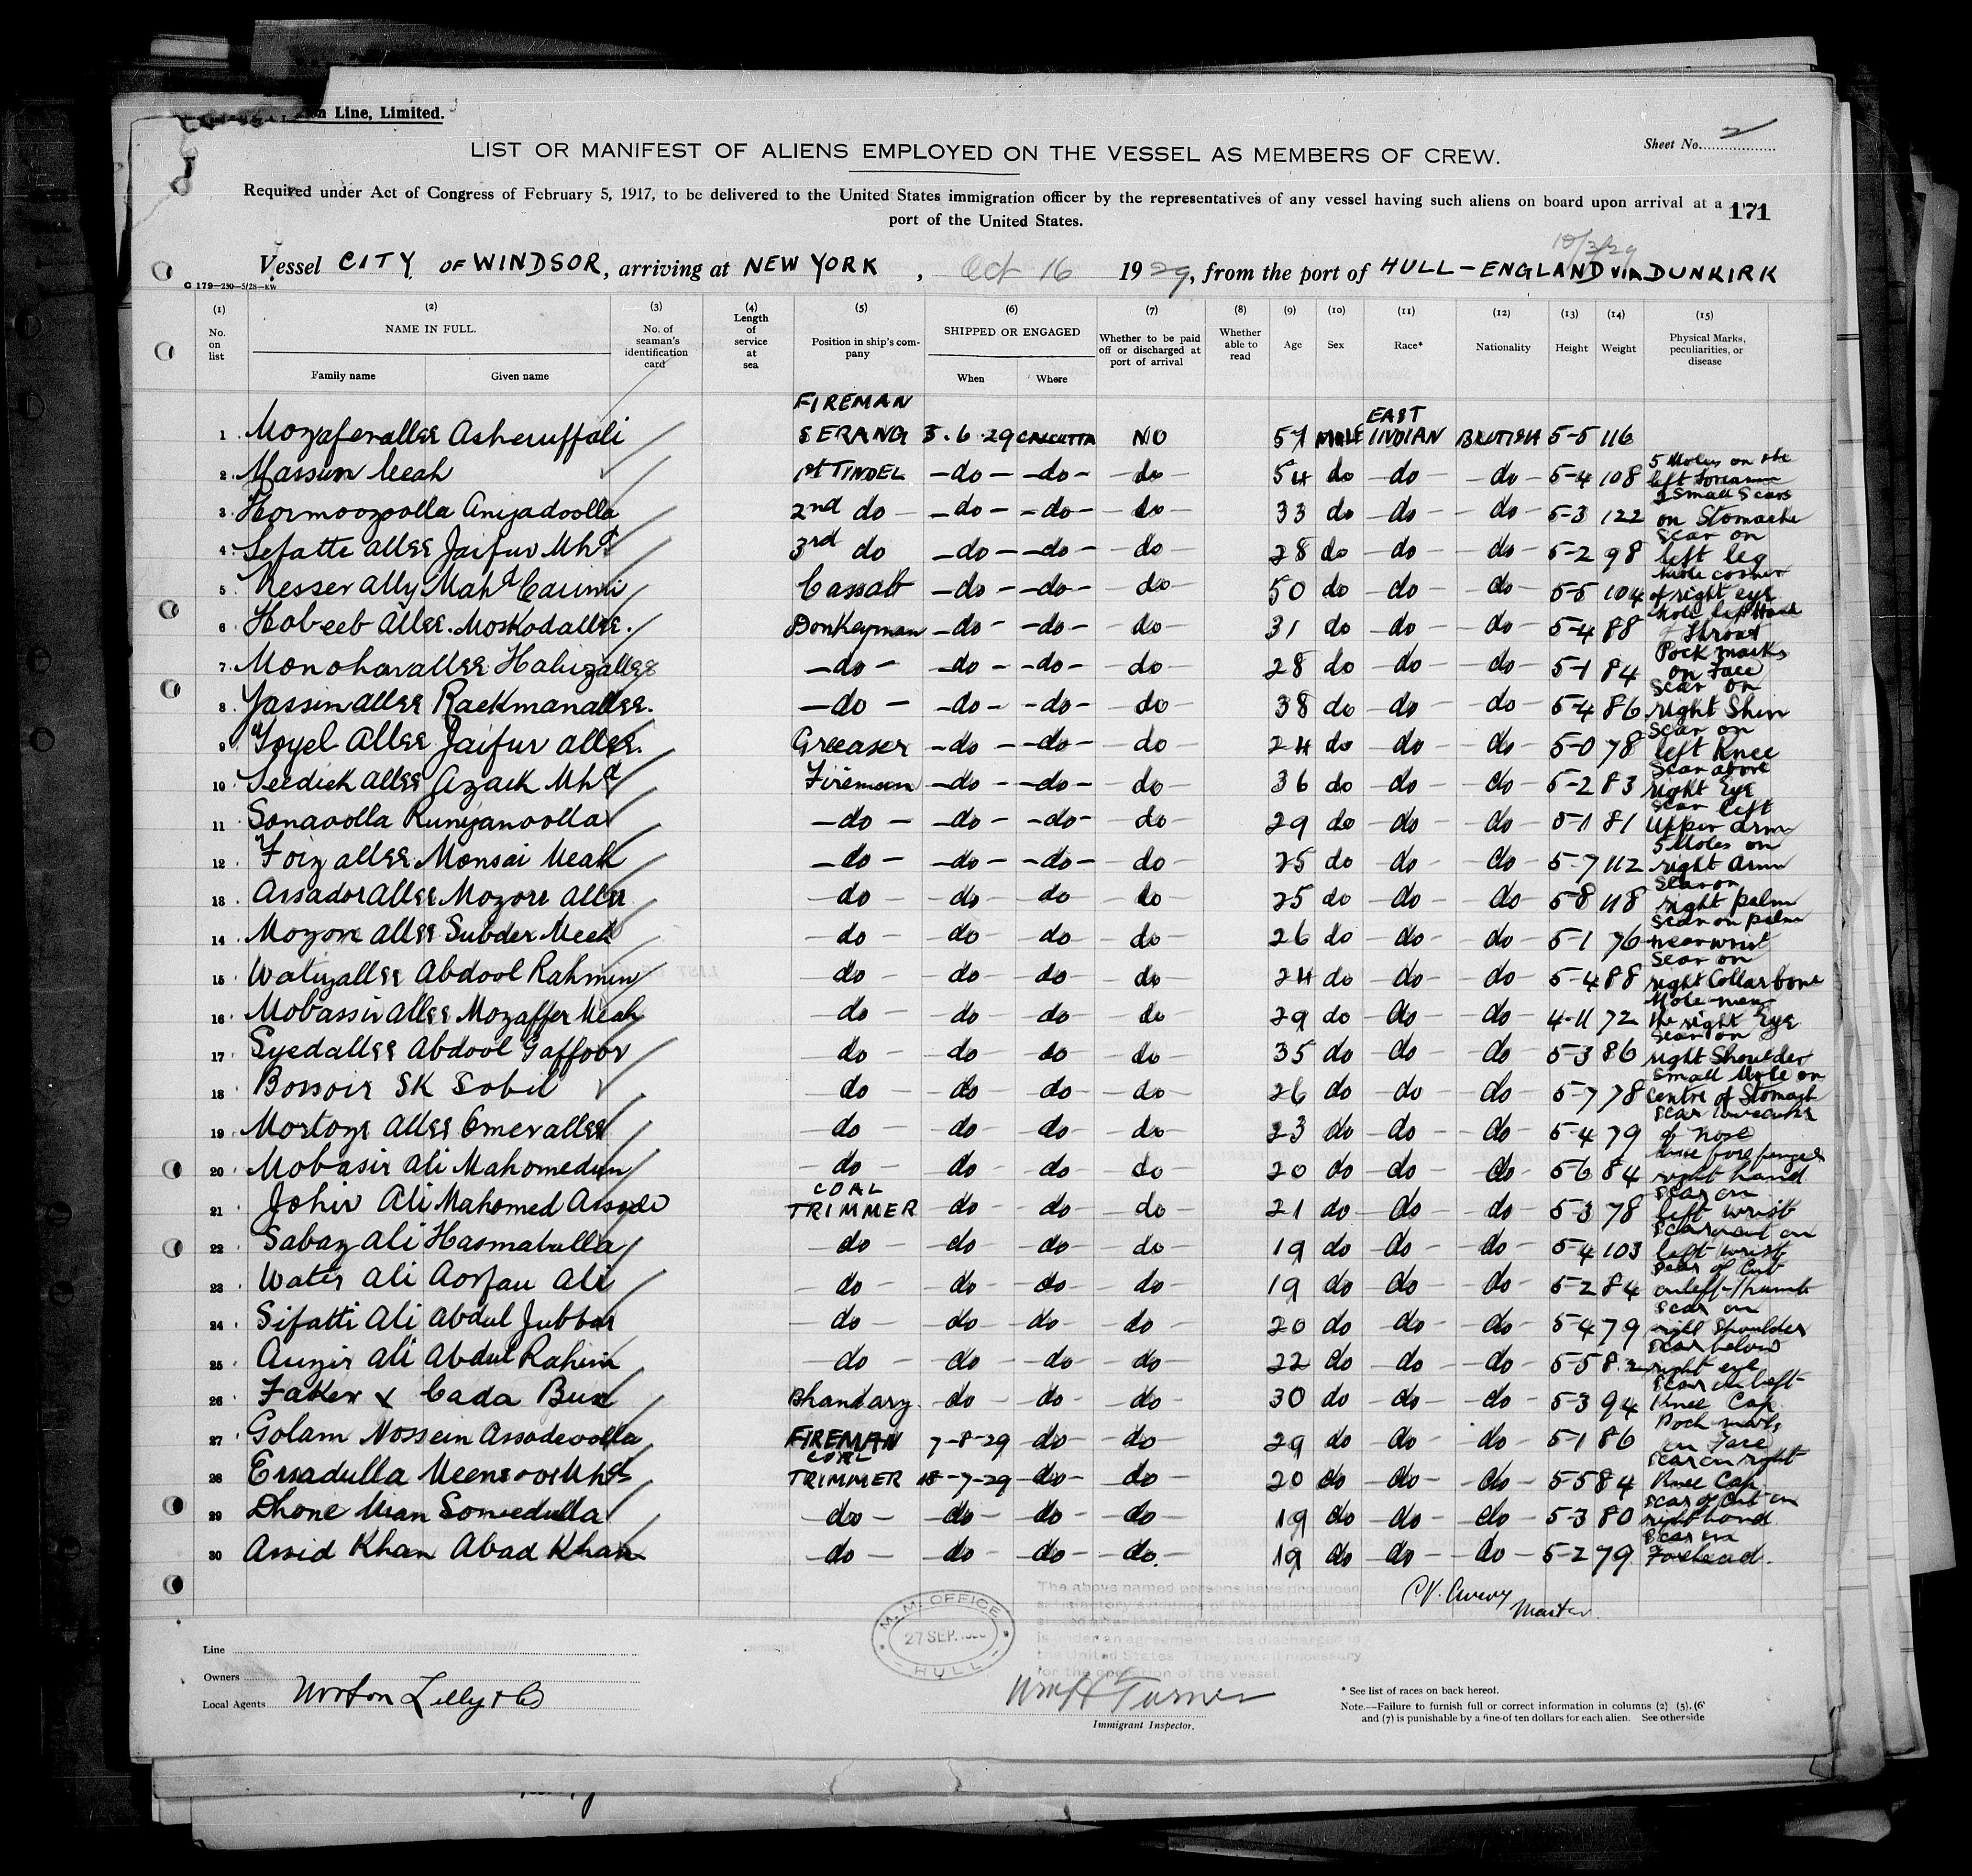 on Line, Limited.
Sheet No. 2
LIST OR MANIFEST OF ALIENS EMPLOYED ON THE VESSEL AS MEMBERS OF CREW.
Required under Act of Congress of February 5, 1917, to be delivered to the United States immigration officer by the representatives of any vessel having such aliens on board upon arrival at a
port of the United States.
171
10/3/29
Vessel CITY OF WINDSOR, arriving at NEW YORK, Oct 16 1929, from the port of HULL - ENGLAND VIA DUNKIRK
G 179-250-5/28-KW
(1) No. on list (2) NAME IN FULL. Family name Given name (3) No. of seaman's identification card (4) Length of service at sea (5) Position in ship's company (6) SHIPPED OR ENGAGED When Where (7) Whether to be paid off or discharged at port of arrival (8) Whether able to read (9) Age (10) Sex (11) Race* (12) Nationality (13) Height (14) Weight (15) Physical Marks, peculiarities, or disease
1 Mozaferallee Asheruffali FIREMAN SERANG 5.6.29 CALCUTTA NO 57 MALE EAST INDIAN BRITISH 5-5 116
2 Massim Meah 1st TINDEL -do- -do- do 54 do do do 5-4 108 5 Moles on the left forearm
3 Hormoozoolla Amjadoolla 2nd do -do- -do- do 33 do do do 5-3 122 2 Small Scars on Stomache
4 Sefatte Allee Jaifur Mhd 3rd do -do- -do- do 28 do do do 5-2 98 Scar on left leg
5 Nesser Ally Mahd Caumi Cassab -do- -do- do 50 do do do 5-5 104 Mole corner of right eye
6 Hobeeb Allee Moskodallee. Donkeyman -do- -do- do 31 do do do 5-4 88 Mole left Hand of throat
7 Monoharallee Hafizallee -do- -do- -do- do 28 do do do 5-1 84 Pock marks on Face
8 Yassinallee Rackmanallee. -do- -do- -do- do 38 do do do 5-4 86 Scar on right Shin
9 Foyel Allee Jaifur Allee. Greaser -do- -do- do 24 do do do 5-0 78 Scar on left Knee
10 Seedick Allee Azack Mhd Fireman -do- -do- do 36 do do do 5-2 83 Scar above right Eye
11 Sonaoolla Rumjanoolla -do- -do- -do- do 29 do do do 5-1 81 Scar left Upper arm
12 Foiz allee Monsai Meah -do- -do- -do- do 25 do do do 5-7 112 5 Moles on right Arm
13 Assador Allee Mozore Allee do do do do 25 do do do 5-8 118 Scar on right palm
14 Mozom Allee Subder Meah do do do do 26 do do do 5-1 76 Scar on palm near wrist
15 Watizallee Abdool Rahmin do do do do 24 do do do 5-4 88 Scar on right Collar bone
16 Mobassir Allee Mozaffer Meah do do do do 29 do do do 4-11 72 Mole near the right Eye
17 Syedallee Abdool Gaffoor do do do do 35 do do do 5-3 86 Scar on right Shoulder
18 Bossoir SK Sobil do do do do 26 do do do 5-7 78 Small Mole on centre of Stomach
19 Mortoze Allee Omerallee do do do do 23 do do do 5-4 79 Scar of Nose
20 Mobasir Ali Mahomedun do do do do 20 do do do 5-6 84 fore finger right hand
21 Johir Ali Mahomed Assode COAL TRIMMER do do do 21 do do do 5-3 78 Scar on left wrist
22 Sabaz Ali Hasmatulla do do do do 19 do do do 5-4 103 left wrist
23 Water Ali Aorfan Ali do do do do 19 do do do 5-2 84 Scar of Cut on left Thumb
24 Sifatti Ali Abdul Jubbar do do do do 20 do do do 5-4 79 Scar on right Shoulder
25 Auzir Ali Abdul Rahim do do do do 22 do do do 5-5 82 Scar below right eye
26 Faker x Cada Bux Bhandary do do do 30 do do do 5-3 94 Scar on left Knee Cap
27 Golam Hossein Assadeoolla FIREMAN 7-8-29 do do 29 do do do 5-1 86 Pock marks on Face
28 Ersadulla Meensoor Mhd COAL TRIMMER 18-7-29 do do 20 do do do 5-5 84 Scar on right Knee Cap
29 Dhone Mian Someedulla do do do do 19 do do do 5-3 80 Scar of Cut on right hand
30 Assid Khan Abad Khan do do do do 19 do do do 5-2 79 Scar on Forehead.
Master.
M. M. OFFICE
27 SEP.
HULL
The above named persons have produced
is under an agreement to be discharged in
the United States. They are all necessary
for the operation of the vessel.
Line
Owners
Local Agents Norton Lilly & Co
Wm H Turner
Immigrant Inspector.
* See list of races on back hereof.
Note.—Failure to furnish full or correct information in columns (2) (5), (6
and (7) is punishable by a fine of ten dollars for each alien. See otherside